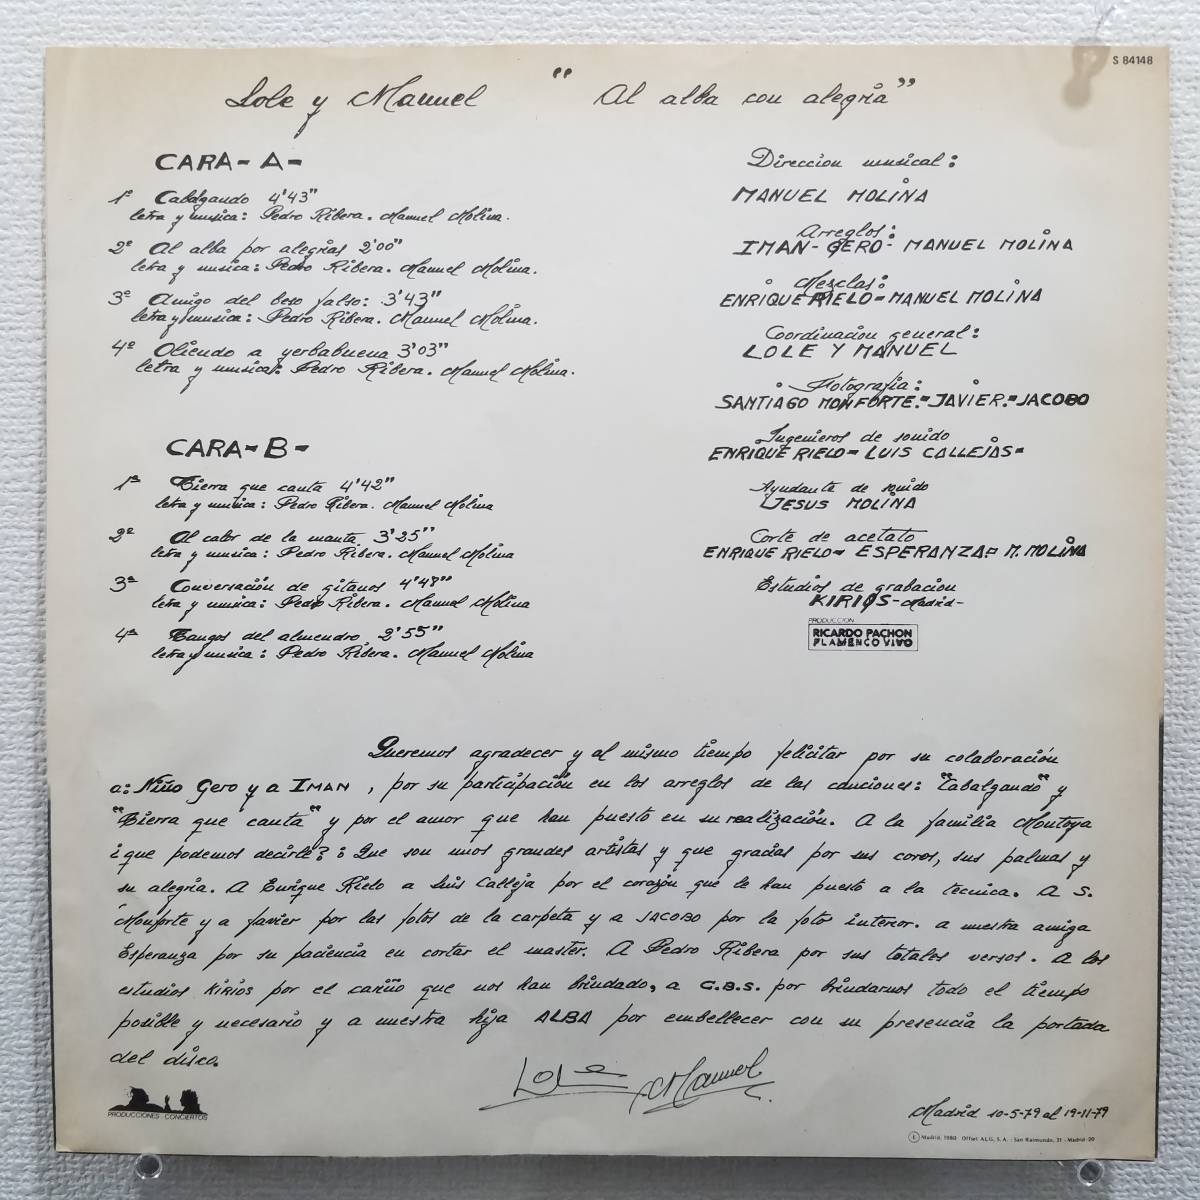 S 84148
Lole y Manuel "Al alba con alegria"
CARA-A-
1ª Cabalgando 4'43"
letra y musica: Pedro Ribera. Manuel Molina.
2ª Al alba por alegrias 2'00"
letra y musica: Pedro Ribera. Manuel Molina.
3ª Amigo del beso falso: 3'43"
letra y musica: Pedro Ribera. Manuel Molina.
4ª Oliendo a yerbabuena 3'03"
letra y musica: Pedro Ribera. Manuel Molina.
CARA-B-
1ª Tierra que canta 4'42"
letra y musica: Pedro Ribera. Manuel Molina
2ª Al calor de la manta 3'25"
letra y musica: Pedro Ribera. Manuel Molina
3ª Conversación de gitanos 4'48"
letra y musica: Pedro Ribera. Manuel Molina
4ª Tangos del almendro 2'55"
letra y musica: Pedro Ribera. Manuel Molina
Direccion musical:
MANUEL MOLINA
Arreglos:
IMAN-GERO-MANUEL MOLINA
Mezclas:
ENRIQUE RIELO=MANUEL MOLINA
Coordinacion general:
LOLE Y MANUEL
Fotografia:
SANTIAGO MONFORTE.=JAVIER.=JACOBO
Ingenieros de sonido
ENRIQUE RIELO= LUIS CALLEJAS=
Ayudante de sonido
JESUS MOLINA
Corte de acetato
ENRIQUE RIELO= ESPERANZA= M. MOLINA
Estudios de grabacion
KIRIOS-Madrid-
PRODUCCION
RICARDO PACHON
FLAMENCO VIVO
Queremos agradecer y al mismo tiempo felicitar por su colaboración
a: Niño Gero y a IMAN, por su participación en los arreglos de las canciones: "Cabalgando" y
"Tierra que canta" y por el amor que han puesto en su realización. A la familia Montoya
¿que podemos decirle?: Que son unos grandes artistas y que gracias por sus coros, sus palmas y
su alegria. A Enrique Rielo a Luis Calleja por el corazón que le han puesto a la tecnica. A S.
Monforte y a Javier por las fotos de la carpeta y a JACOBO por la foto interior. a nuestra amiga
Esperanza por su paciencia en cortar el master. A Pedro Ribera por sus totales versos. A los
estudios KIRIOS por el cariño que nos han brindado, a C.B.S. por brindarnos todo el tiempo
posible y necesario y a nuestra hija ALBA por embellecer con su presencia la portada
del disco.
Lole Manuel
PRODUCCIONES CONCIERTOS
Madrid 10-5-79 al 19-11-79
Madrid, 1980 Offset ALG, S. A. - San Raimundo, 31 - Madrid-20